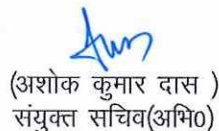 (अशोक कुमार दास )
संयुक्त सचिव(अभि०)